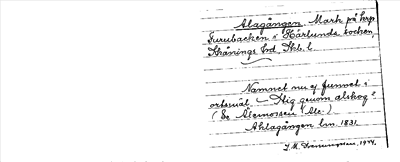 Alagången. Mark på hrp
Furubacken i Härlunda socken
Skånings hd. Skb. l.
Namnet nu ej funnet i
ortsmål – Hig genom alskog"
(Se Alemossen Ale.)
Ahlagången lm. 1831.
1944.